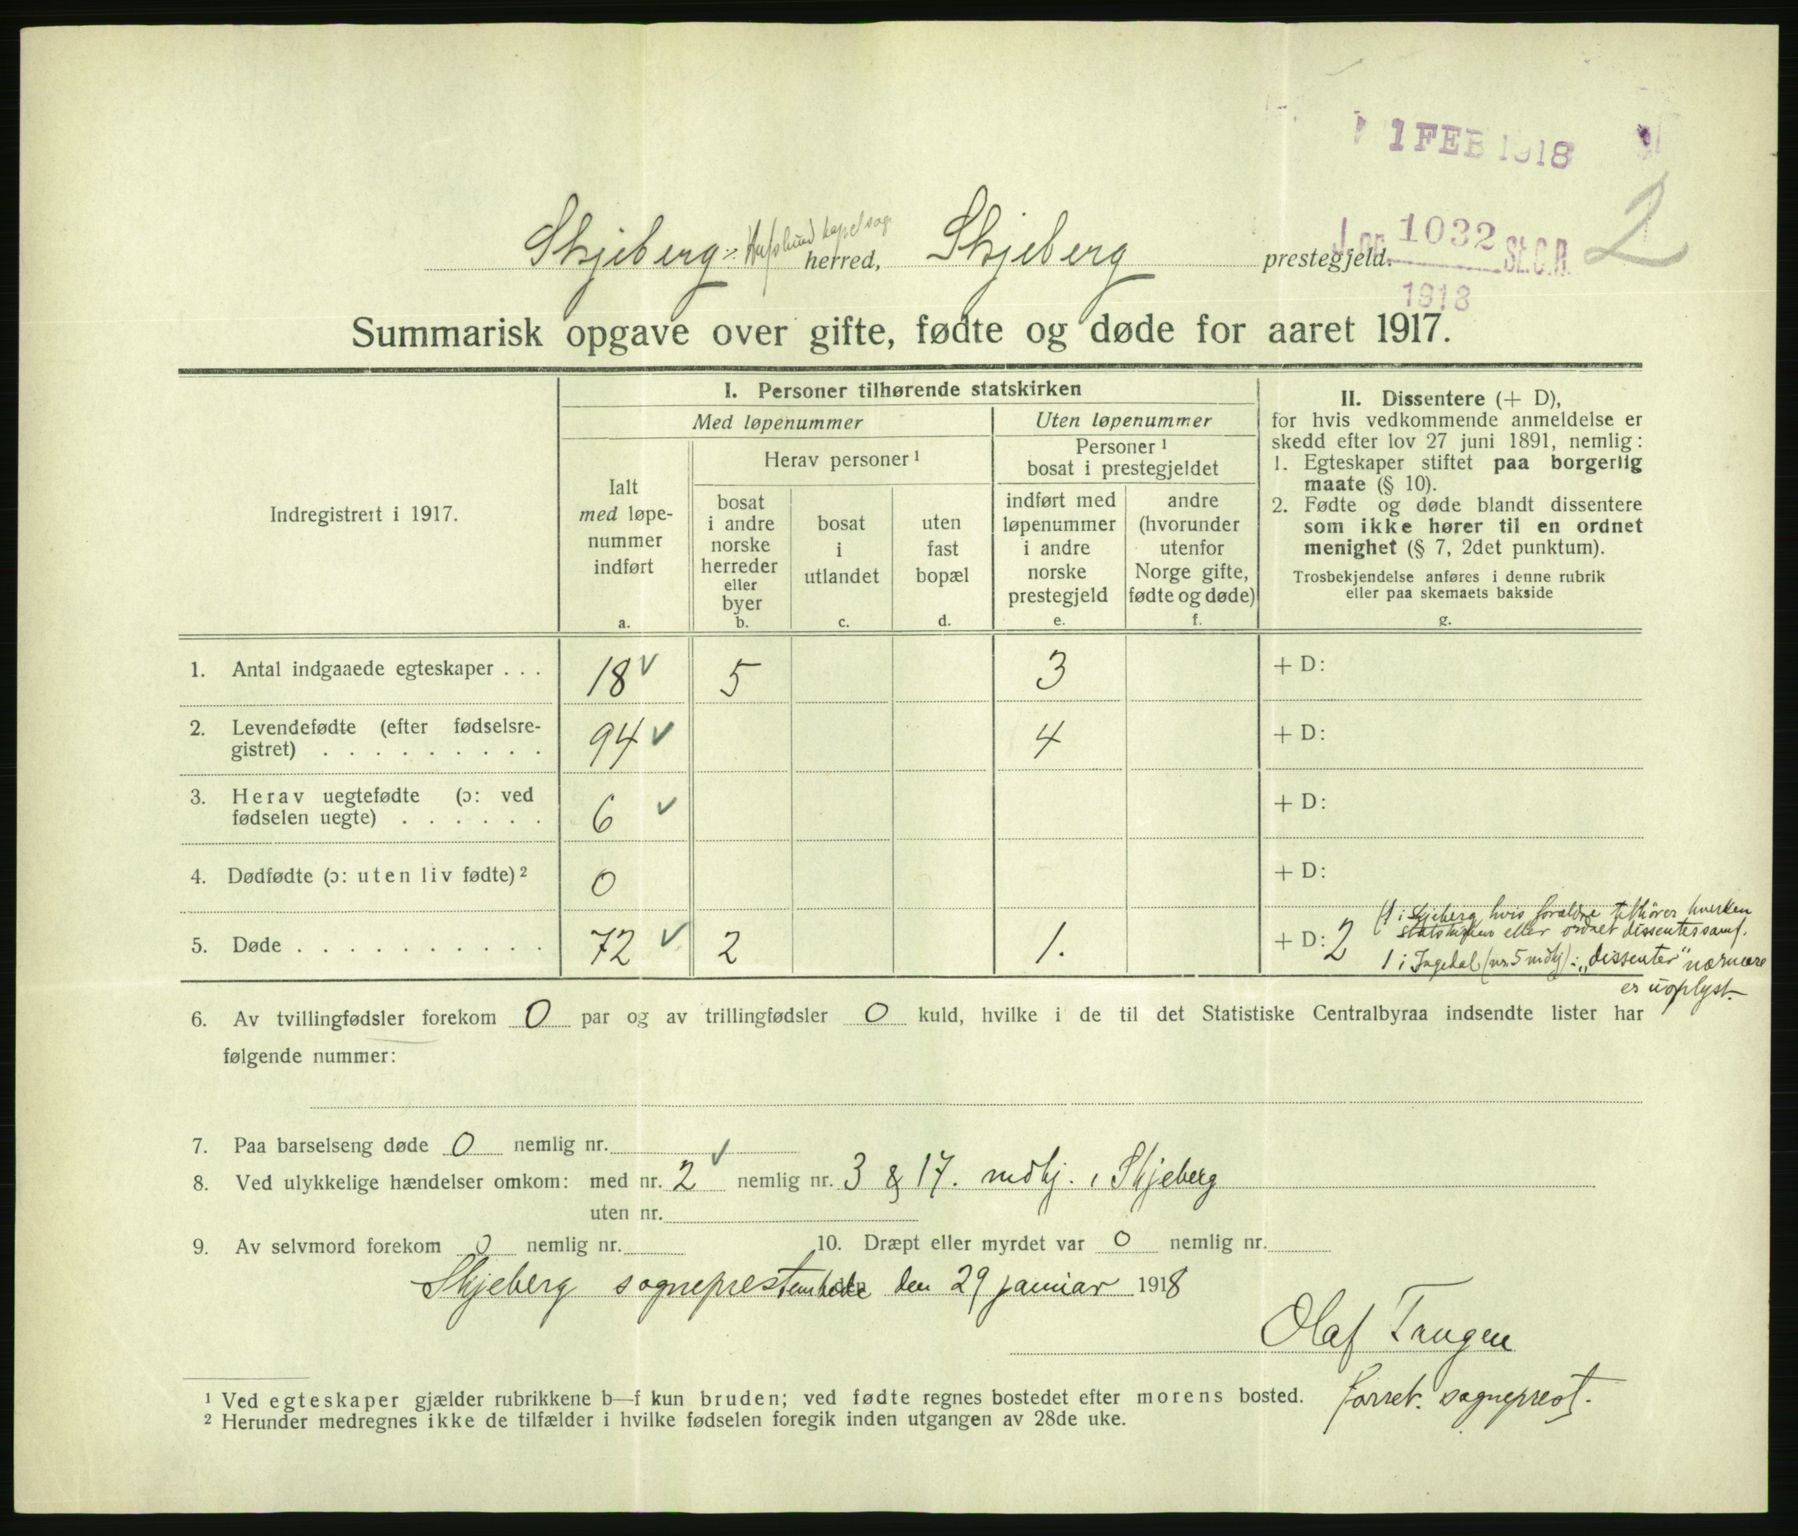 1 FEB 1918
J. nr. 1032 St. C. B.
1918
2
Skjeberg ÷ Hafslund kapelsogn herred, Skjeberg prestegjeld.
Summarisk opgave over gifte, fødte og døde for aaret 1917.
Indregistrert i 1917.
I. Personer tilhørende statskirken
Med løpenummer
Uten løpenummer
Herav personer ¹
Personer ¹
bosat i prestegjeldet
Ialt
med løpe-
nummer
indført
a.
bosat
i andre
norske
herreder
eller
byer
b.
bosat
i
utlandet
c.
uten
fast
bopæl
d.
indført med
løpenummer
i andre
norske
prestegjeld
e.
andre
(hvorunder
utenfor
Norge gifte,
fødte og døde)
f.
II. Dissentere (+ D),
for hvis vedkommende anmeldelse er
skedd efter lov 27 juni 1891, nemlig:
1. Egteskaper stiftet paa borgerlig
maate (§ 10).
2. Fødte og døde blandt dissentere
som ikke hører til en ordnet
menighet (§ 7, 2det punktum).
Trosbekjendelse anføres i denne rubrik
eller paa skemaets bakside
g.
1. Antal indgaaede egteskaper . . . 18 ✓ 5 3 + D:
2. Levendefødte (efter fødselsre-
gistret) . . . . . . . . . 94 ✓ 4 + D:
3. Herav uegtefødte (ɔ: ved
fødselen uegte) . . . . . . 6 ✓ + D:
4. Dødfødte (ɔ: uten liv fødte) ² 0 + D:
5. Døde . . . . . . . . . . 72 ✓ 2 1. + D: 2
(1 i Skjeberg hvis forældre tilhører hverken
statskirken eller ordnet dissentersamf.
1 i Ingedal (nr. 5 mdkj): "dissenter" nærmere
er uoplyst.
6. Av tvillingfødsler forekom 0 par og av trillingfødsler 0 kuld, hvilke i de til det Statistiske Centralbyraa indsendte lister har
følgende nummer:
7. Paa barselseng døde 0 nemlig nr.
8. Ved ulykkelige hændelser omkom: med nr. 2 ✓ nemlig nr. 3 & 17. mdkj. i Skjeberg
uten nr.
9. Av selvmord forekom 0 nemlig nr. 10. Dræpt eller myrdet var 0 nemlig nr.
Skjeberg sogneprestembede den 29 januar 1918
Olaf Tangen
forret. sogneprest.
¹ Ved egteskaper gjælder rubrikkene b—f kun bruden; ved fødte regnes bostedet efter morens bosted.
² Herunder medregnes ikke de tilfælder i hvilke fødselen foregik inden utgangen av 28de uke.